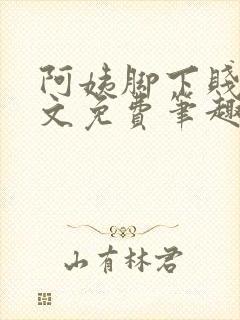 阿姨脚下贱
文免费笔趣
山有林君